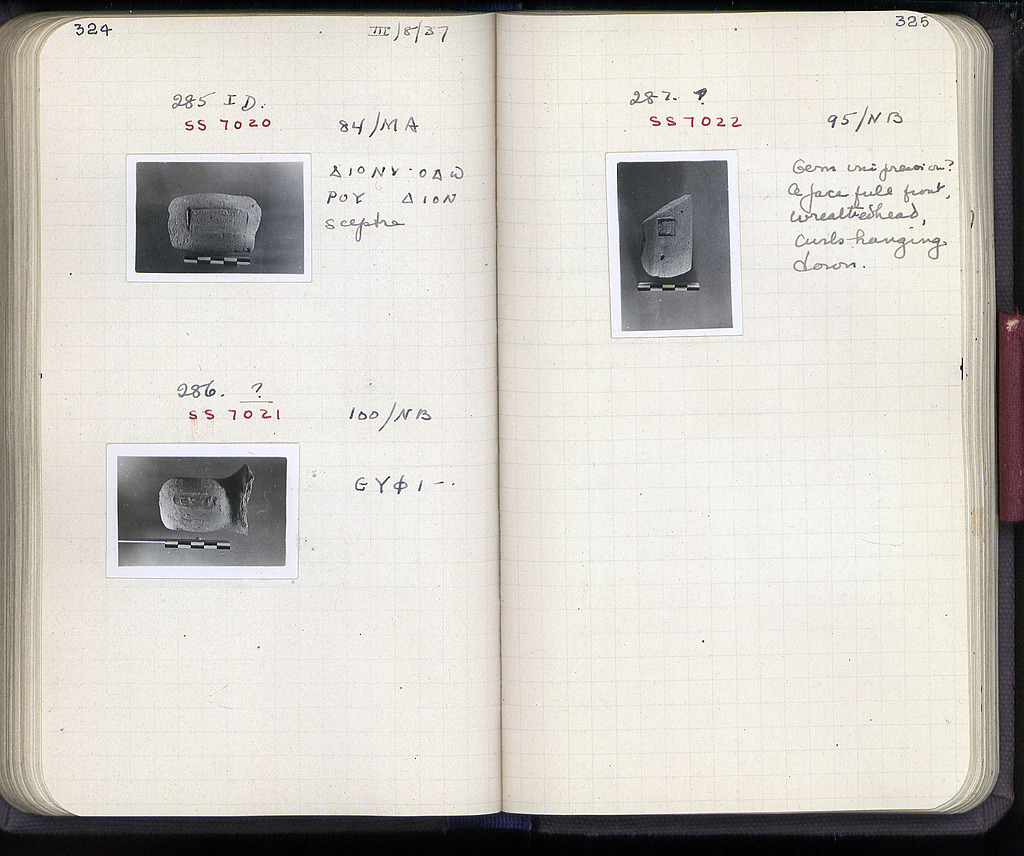 324
III/8/37
285 I D.
SS 7020
84/MA
ΔIONV·OΔW
POY ΔION
sceptre
286. ?
SS 7021
100/NB
GYΦI-·
325
287. ?
SS 7022
95/NB
Gem impression?
a face full front,
wreathed head,
curls hanging
down.